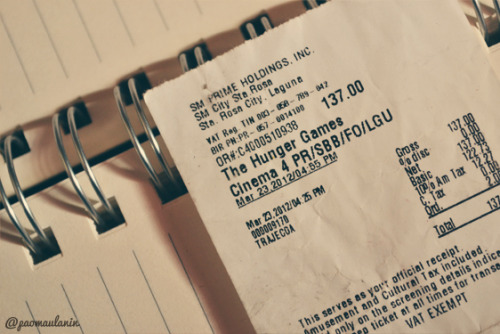 SM PRIME HOLDINGS, INC.
SM City Sta. Rosa
Sta. Rosa City - Laguna
VAT Reg TIN 003-058-789-042
BIR PN:PR-057-0014100
OR#:C4G00510936
137.00
The Hunger Games
Cinema 4 PR/SBB/FO/LGU
Mar 23 2012/04:55 PM
Mar 23 2012/04:25 PM
000009170
TRAJECOA
Gross 137.00
% disc 0.00
Net 137.00
Basic
10% Am Tax
C. Tax
Ord.
Total 137
This serves as your official receipt.
Amusement and Cultural Tax included.
only on the screening details indica
ticket at all times for
VAT EXEMPT
@paomaulanin